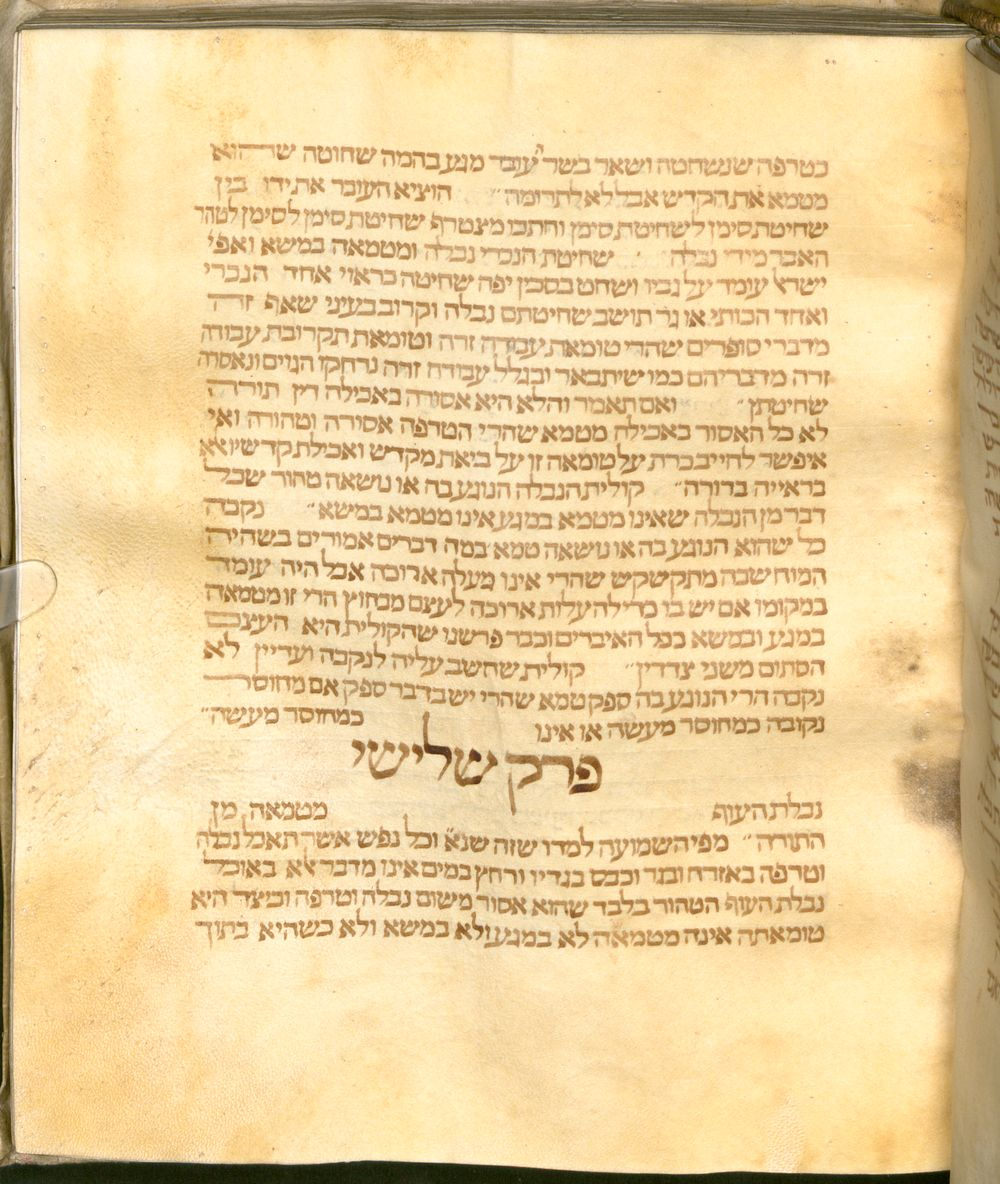 כטרפה שנשחטה ושאר בשר עובר מגע בהמה שחוטה שהוא
מטמא את הקדש אבל לא לתרומה״ הוציא העובר את ידו בין
שחיטת סימן לשחיטת סימן וחתכו מצטרף שחיטת סימן לסימן לטהר
האבר מידי נבלה שחיטת הנכרי נבלה ומטמאה במשא ואפי׳
ישראל עומד על גביו ושחט בסכין יפה שחיטה כראוי אחד הנכרי
ואחד הכותי או גר תושב שחיטתם נבלה וקרוב בעיני שאף זה
מדברי סופרים שהרי טומאת עבודה זרה וטומאת תקרובת עבודה
זרה מדבריהם כמו שיתבאר ובגלל עבודה זרה נרחקו הגויים ונאסרה
שחיטתן״ ואם תאמר והלא היא אסורה באכילה דין תורה
לא כל האסור באכילה מטמא שהרי הטרפה אסורה וטהורה ואי
איפשר לחייב כרת על טומאה זו על ביאת מקדש ואכילת קדשיו אלא
בראייה ברורה״ קולית הנבלה הנוגע בה או נושאה טהור שכל
דבר מן הנבלה שאינו מטמא במגע אינו מטמא במשא״ נקבה
כל שהוא הנוגע בה או נושאה טמא במה דברים אמורים בשהיה
המוח שבה מתקשקש שהרי אינו מעלה ארוכה אבל היה עומד
במקומו אם יש בו כדי להעלות ארוכה לעצם מבחוץ הרי זו מטמאה
במגע ובמשא ככל האיברים וכבר פרשנו שהקולית היא העצם
הסתום משני צדדין״ קולית שחשב עליה לנקבה ועדיין לא
נקבה הרי הנוגע בה ספק טמא שהרי יש בדבר ספק אם מחוסר
נקובה כמחוסר מעשה או אינו כמחוסר מעשה״
פרק שלישי
נבלת העוף מטמאה מן
התורה״ מפי השמועה למדו שזה שנא׳ וכל נפש אשר תאכל נבלה
וטרפה באזרח ובגר וכבס בגדיו ורחץ במים אינו מדבר אלא באוכל
נבלת העוף הטהור בלבד שהוא אסור משום נבלה וטרפה וכיצד היא
טומאתה אינה מטמאה לא במגע ולא במשא ולא כשהיא בתוך